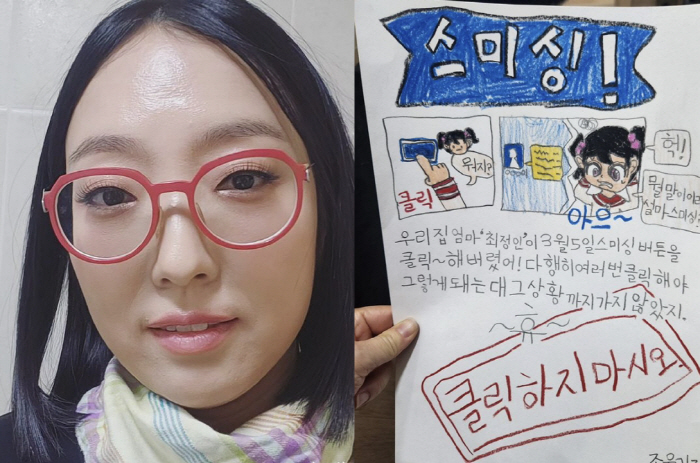 스미싱!
클릭
뭐지?
헉!
뭘 말이야
설마 스미싱?
아으~
우리집 엄마 '최정안'이 3월 5일 스미싱 버튼을
클릭~해 버렸어! 다행히 여러번 클릭해야
그렇게 돼는대 그 상황까지 가지 않았지.
휴~
클릭하지마시오.